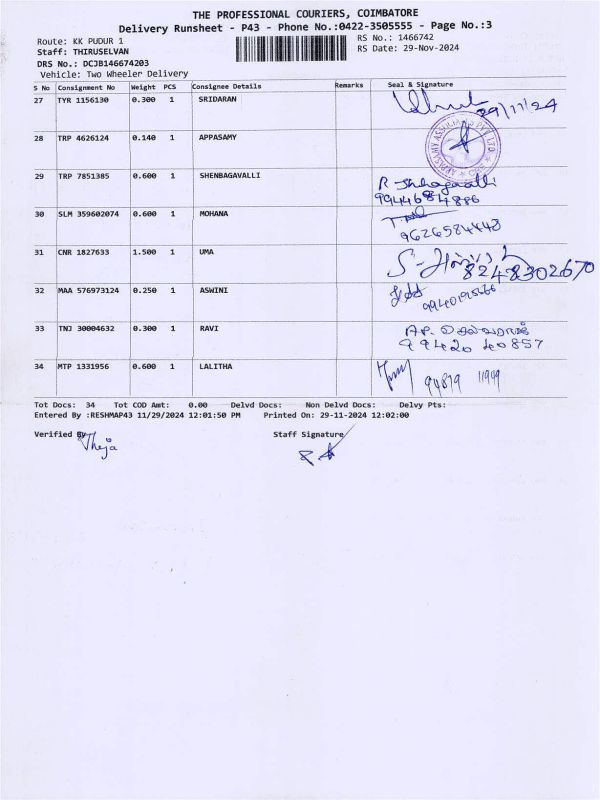 THE PROFESSIONAL COURIERS, COIMBATORE
Delivery Runsheet - P43 - Phone No.:0422-3505555 - Page No.:3
Route: KK PUDUR 1
RS No.: 1466742
Staff: THIRUSELVAN
RS Date: 29-Nov-2024
DRS No.: DCJB146674203
Vehicle: Two Wheeler Delivery
S No Consignment No Weight PCS Consignee Details Remarks Seal & Signature
27 TYR 1156130 0.300 1 SRIDARAN 29/11/24
28 TRP 4626124 0.140 1 APPASAMY
APPASAMY ASSOCIATES PVT LTD
29 TRP 7851385 0.600 1 SHENBAGAVALLI
30 SLM 359602074 0.600 1 MOHANA
9626584448
31 CNR 1827633 1.500 1 UMA
8248302670
32 MAA 576973124 0.250 1 ASWINI
33 TNJ 30004632 0.300 1 RAVI
99420 40857
34 MTP 1331956 0.600 1 LALITHA
Tot Docs: 34 Tot COD Amt: 0.00 Delvd Docs: Non Delvd Docs: Delvy Pts:
Entered By :RESHMAP43 11/29/2024 12:01:50 PM Printed On: 29-11-2024 12:02:00
Verified By Theja
Staff Signature